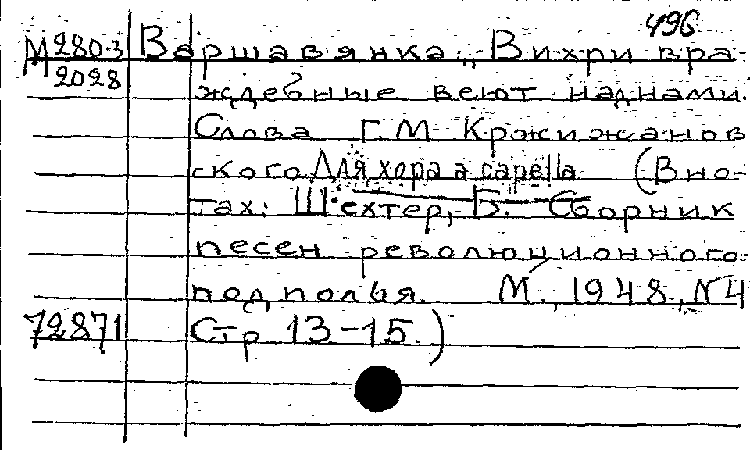 496
М280-3 Варшавянка „Вихри вра-
2028 ждебные веют над нами.
Слова Г.М Кржижанов
ского Для хора a capella (В но-
тах: Шехтер, Б. Сборник
песен революционного
подполья. М., 1948, N4
72871 Стр 13-15.)